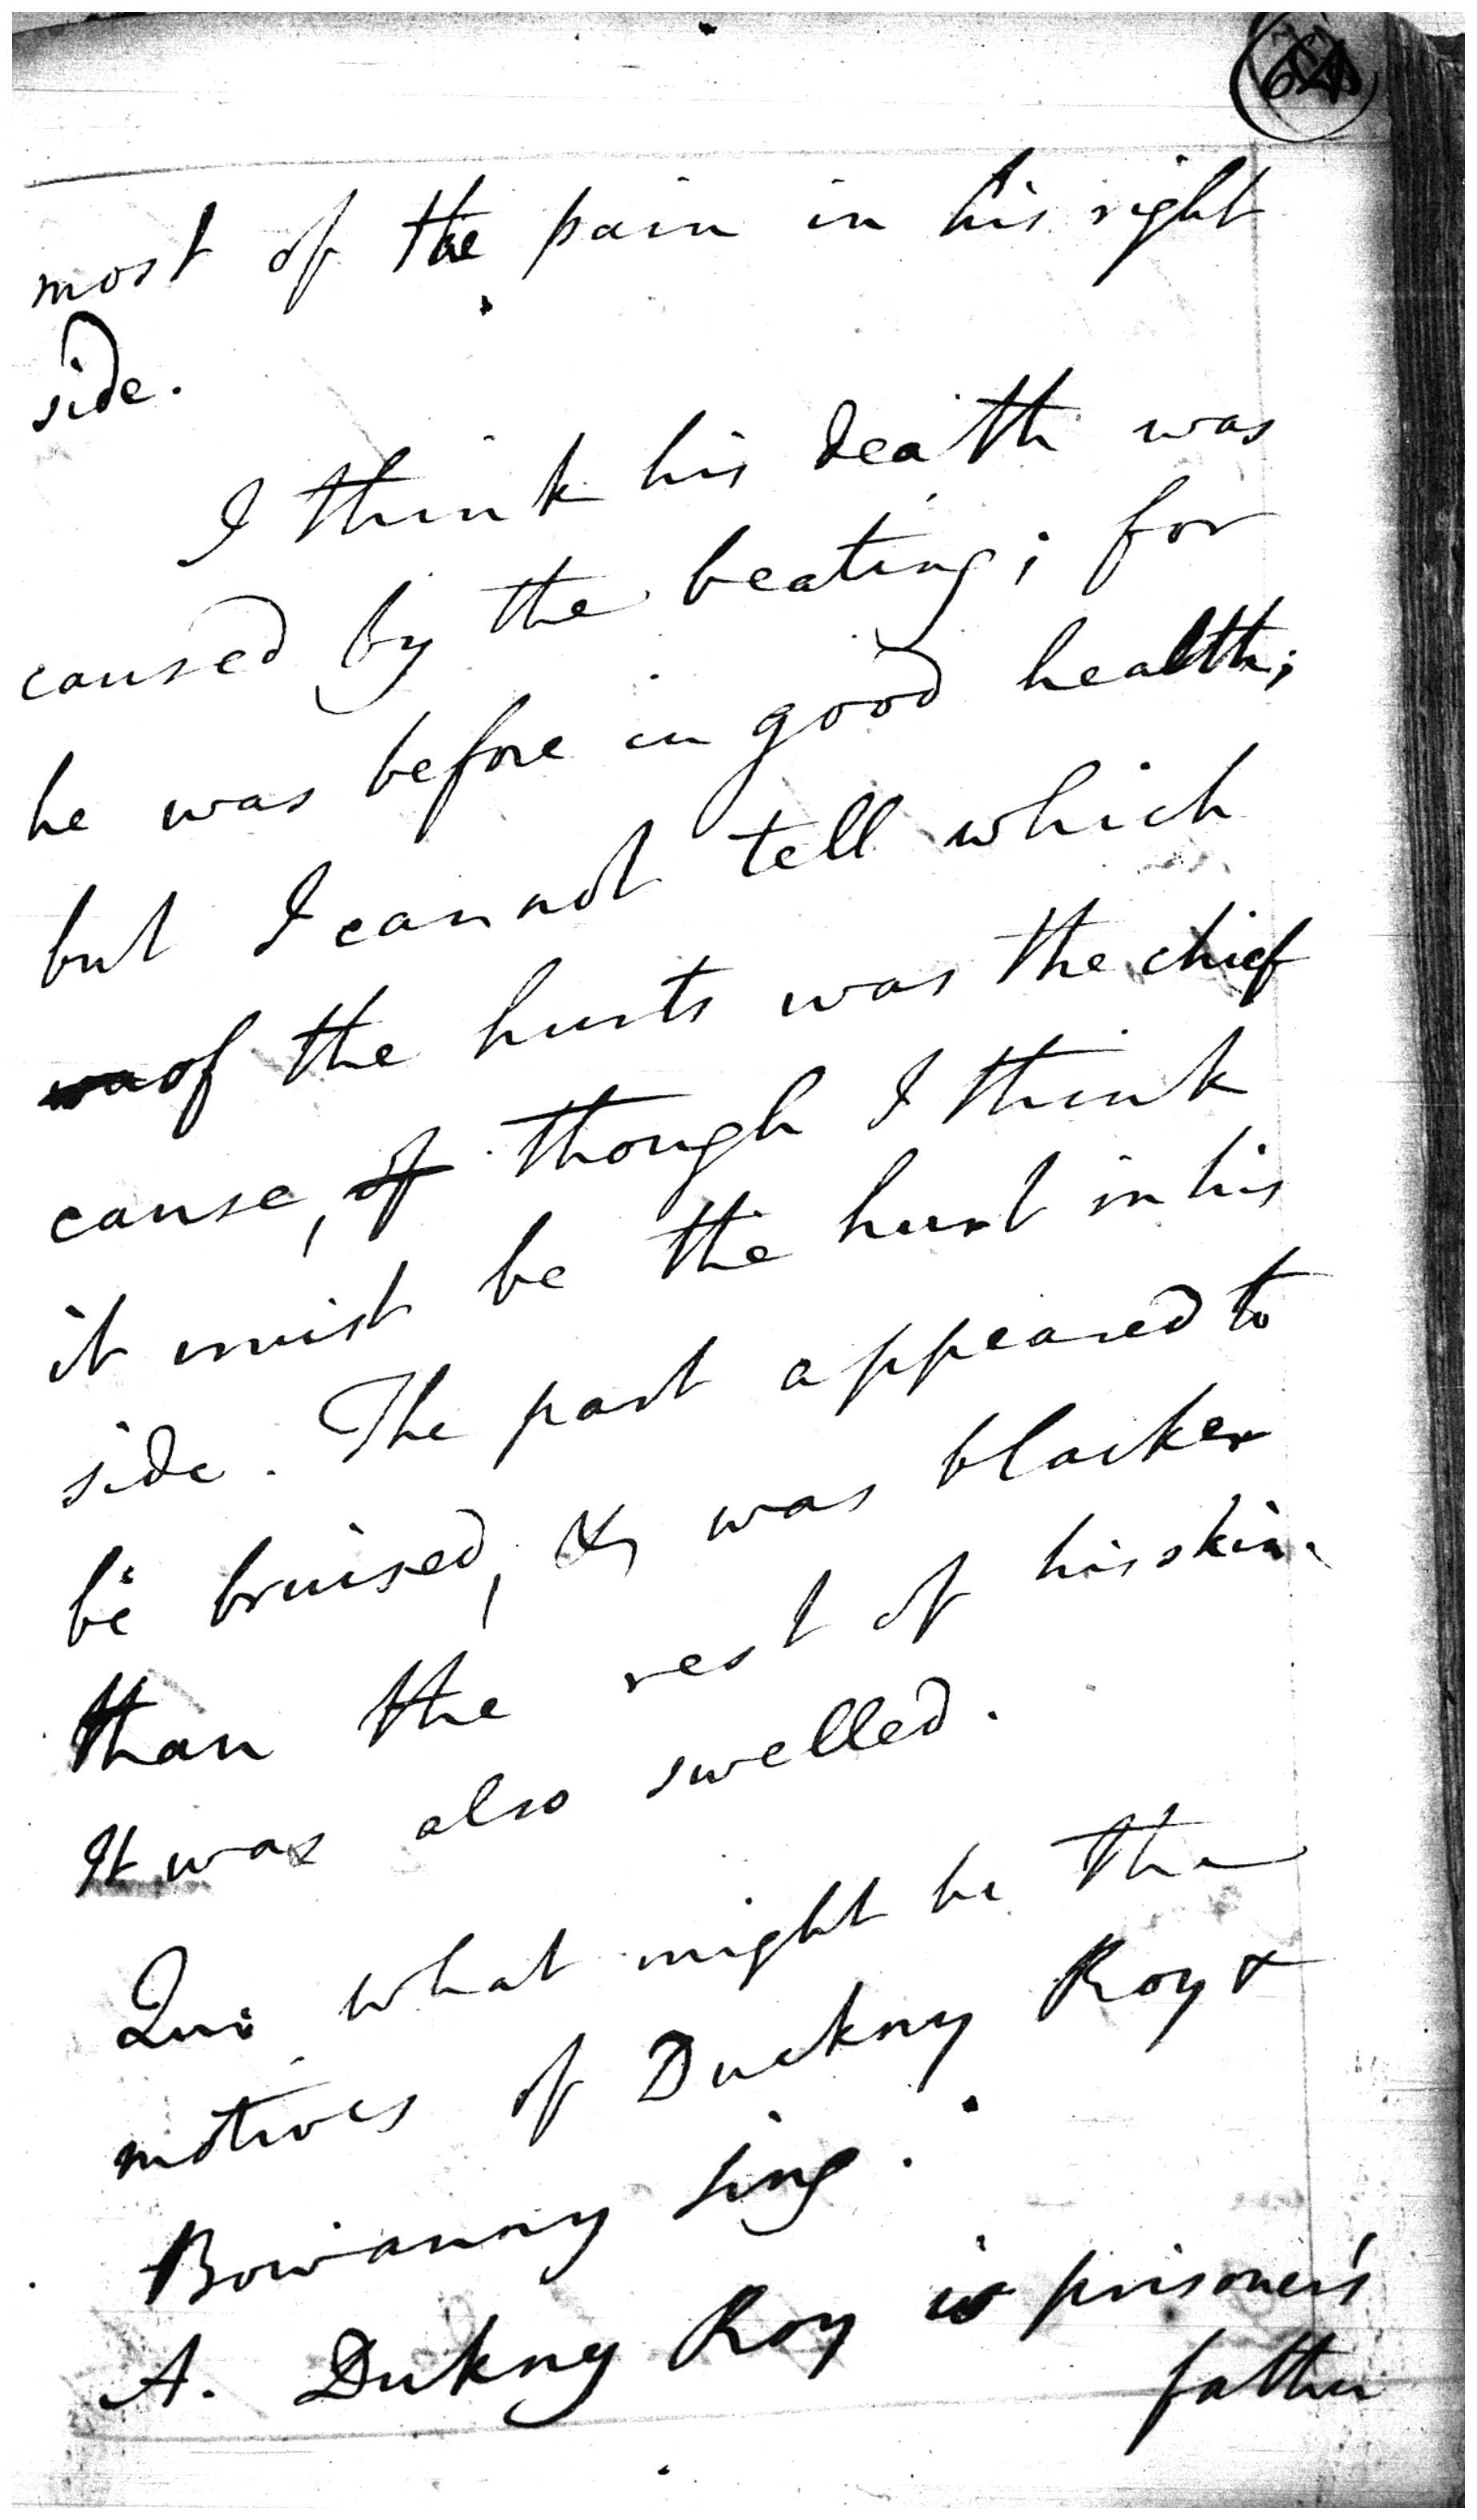 most of the pain in his right
side.
I think his death was
caused by the beating; for
he was before in good health;
but I cannot tell which
of the hurts was the chief
cause, of though I think
it must be the hurt in his
side. The part appeared to
be bruised, & was blacker
than the rest of his skin.
It was also swelled.
Qu: what might be the
motives of Duckny Roy &
Bowanny Sing.
A. Dukny Roy is prisoner's
father